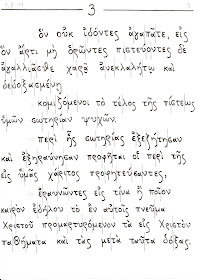 3
ὃν οὐκ ἰδόντες ἀγαπᾶτε, εἰς
ὃν ἄρτι μὴ ὁρῶντες πιστεύοντες δὲ
ἀγαλλιᾶσθε χαρᾷ ἀνεκλαλήτῳ καὶ
δεδοξασμένῃ
κομιζόμενοι τὸ τέλος τῆς πίστεως
ὑμῶν σωτηρίαν ψυχῶν.
περὶ ἧς σωτηρίας ἐξεζήτησαν
καὶ ἐξηραύνησαν προφῆται οἱ περὶ τῆς
εἰς ὑμᾶς χάριτος προφητεύσαντες,
ἐραυνῶντες εἰς τίνα ἢ ποῖον
καιρὸν ἐδήλου τὸ ἐν αὐτοῖς πνεῦμα
Χριστοῦ προμαρτυρόμενον τὰ εἰς Χριστὸν
παθήματα καὶ τὰς μετὰ ταῦτα δόξας.